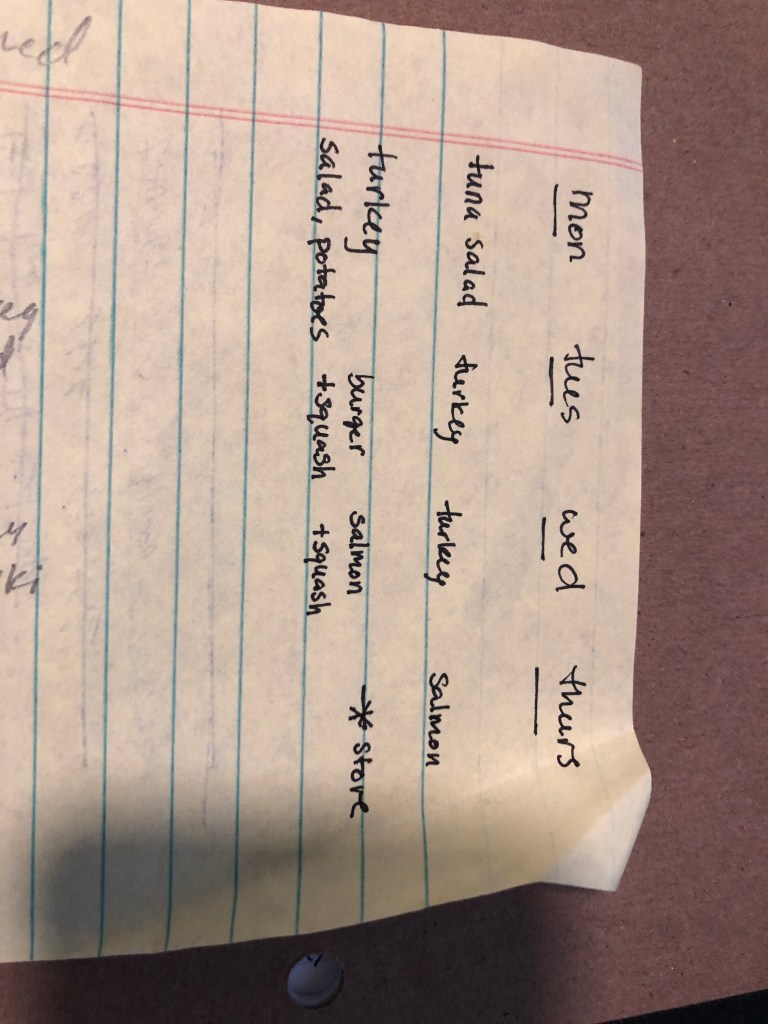 mon tues wed thurs
tuna salad turkey turkey salmon
turkey burger salmon * store
salad, potatoes +squash +squash